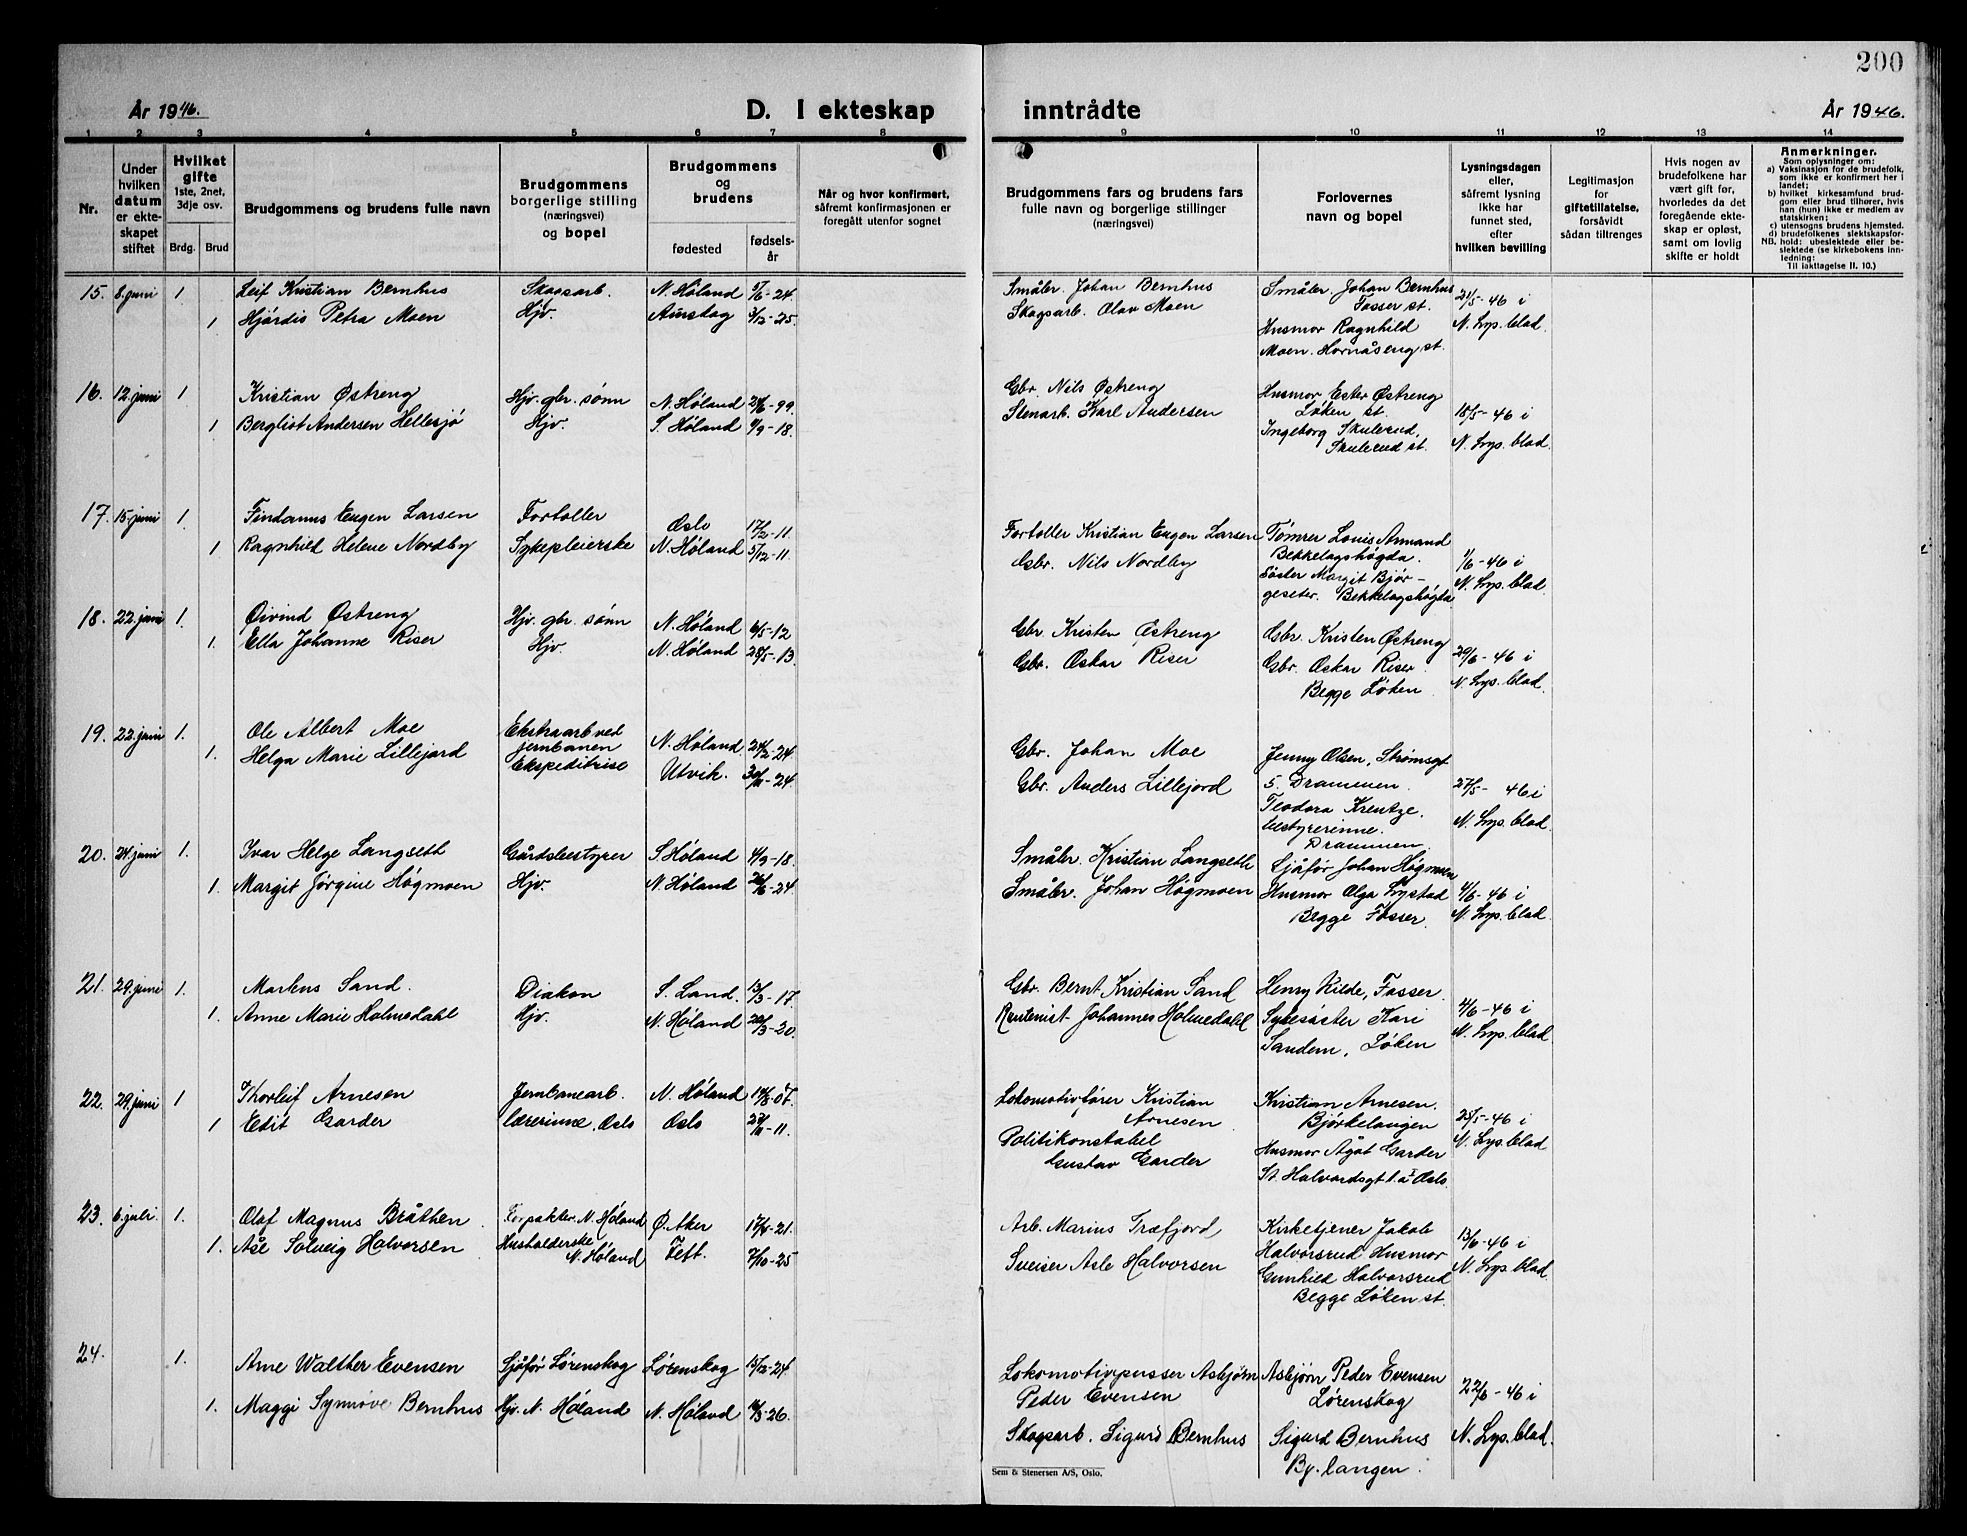 200
År 1946.
D. I ekteskap
inntrådte
År 1946.
1 2 3 4 5 6 7 8 9 10 11 12 13 14
Nr.
Under hvilken datum er ekteskapet stiftet
Hvilket gifte 1ste, 2net, 3dje osv.
Brdg. Brud
Brudgommens og brudens fulle navn
Brudgommens borgerlige stilling (næringsvei) og bopel
Brudgommens og brudens
fødested
fødselsår
Når og hvor konfirmert, såfremt konfirmasjonen er foregått utenfor sognet
Brudgommens fars og brudens fars fulle navn og borgerlige stillinger (næringsvei)
Forlovernes navn og bopel
Lysningsdagen eller, såfremt lysning ikke har funnet sted, efter hvilken bevilling
Legitimasjon for giftetillatelse, forsåvidt sådan tiltrenges
Hvis nogen av brudefolkene har vært gift før, hvorledes da det foregående ekteskap er opløst, samt om lovlig skifte er holdt
Anmerkninger.
Som oplysninger om:
a) Vaksinasjon for de brudefolk, som ikke er konfirmert her i landet;
b) hvilket kirkesamfund brudgom eller brud tilhører, hvis han (hun) ikke er medlem av statskirken;
c) utensogns brudens hjemsted.
d) brudefolkenes slektskapsforhold: ubeslektede eller beslektede (se kirkebokens innledning:
NB. Til iakttagelse II. 10.)
15. 8. juni 1 Leif Kristian Bernhus Skogsarb. N. Høland 5/6-24 Småbr. Johan Bernhus Småbr. Johan Bernhus 21/5-46 i
Fosser st.
1 Hjördis Petra Moen Hjv. Aurskog 3/12-25. Skogsarb. Olav Moen Husmor Ragnhild N. Lys. blad.
Moen. Hornåseng st.
16. 12. juni 1 Kristian Østreng Hjv. gbr. sønn N. Høland -99 Gbr. Nils Østreng Husmor Ester Østreng
Løken st. 18/5-46 i
1 Bergliot Andersen Hellesjø Hjv. S. Høland 9/9-18. Stenarb. Karl Andersen Ingeborg Skulerud, N. Lys. blad.
Skulerud st.
17. 15. juni 1. Eugen Larsen Fortoller Oslo 17/2-11. Fortoller Kristian Eugen Larsen Tømrer Louis Amand
Bekkelagshøgda. 1/6-46 i
1 Ragnhild Helene Nordby Sykepleierske N. Høland 5/12-11. Gbr. Nils Nordby Søster Margit Bjør- N. Lys. blad.
geseter. Bekkelagshøgda
18. 22. juni 1. Øivind Østreng Hjv. gbr. sønn N. Høland 6/5-12 Gbr. Kristen Østreng Gbr. Kristen Østreng
1. Ella Johanne Riser Hjv. N. Høland 28/5-13. Gbr. Oskar Riser Gbr. Oskar Riser. -46 i
Begge Løken. N. Lys. blad.
19. 22. juni 1. Ole Albert Moe Ekstraarb ved jernbanen N. Høland 24/2-24 Gbr. Johan Moe Jenny Olsen, Strømsgt
5. Drammen. 27/5-46 i
1. Helga Marie Lillejord Ekspeditrise Utvik. 30/11-24. Gbr. Anders Lillejord Teodora Krentze. N. Lys. blad
bestyrerinne.
Drammen.
20. 24. juni 1. Ivar Helge Langseth Gårdsbestyrer S. Høland 4/9-18. Småbr. Kristian Langseth Sjåfør Johan Högmoen
1. Margit Jörgine Högmoen Hjv. N. Høland 26/6-24. Småbr. Johan Högmoen Husmor Olga Lystad 4/6-46 i
Begge Fosser. N. Lys. blad.
21. 29. juni 1. Martens Sand. Diakon S. Land. 13/3-17 Gbr. Bernt Kristian Sand Henry Kilde, Fosser.
1. Anne Marie Holmedahl Hjv. N. Høland 22/3-20. Rentenist Johannes Holmedahl Sykesöster Kari 4/6-46 i
Sandem, Løken N. Lys. blad
22. 29. juni 1 Thorleif Arnesen Jernbanearb. N. Høland 14/8-07. Lokomotivfører Kristian Arnesen Kristian Arnesen. Bjørkelangen 25/5-46 i
1 Edit Garder lærerinne, Oslo Oslo 27/11-11. Politikonstabel Gustav Garder Husmor Ågot Garder N. Lys. blad
St. Halvordsgt 1. a I Oslo.
23. 6. juli. 1. Olaf Magnus Bråthen. Forpakter. N. Høland Ø. Aker 17/4-21. Arb. Marius Træfjord Kirketjener Jakob 13/6-46 i
1. Åse Solveig Halvorsen Husholderske N. Høland Jeft. 7/10-25 Sveiser Asle Halvorsen Halvorsrud Husmor N. Lys. blad
Gunhild Halvorsrud
Begge Løken st.
24. 1. Arne Walther Evensen Sjåfør Lørenskog Lørenskog 15/12-24. Lokomotivpusser Asbjørn Peder Evensen Asbjørn Peder Evensen Lørenskog 22/6-46 i
1. Maggi Synnøve Bernhus Hjv. N. Høland N. Høland 14/3-26. Skogsarb. Sigurd Bernhus Sigurd Bernhus N. Lys. blad.
Bj. langen.
Sem & Stenersen A/S, Oslo.